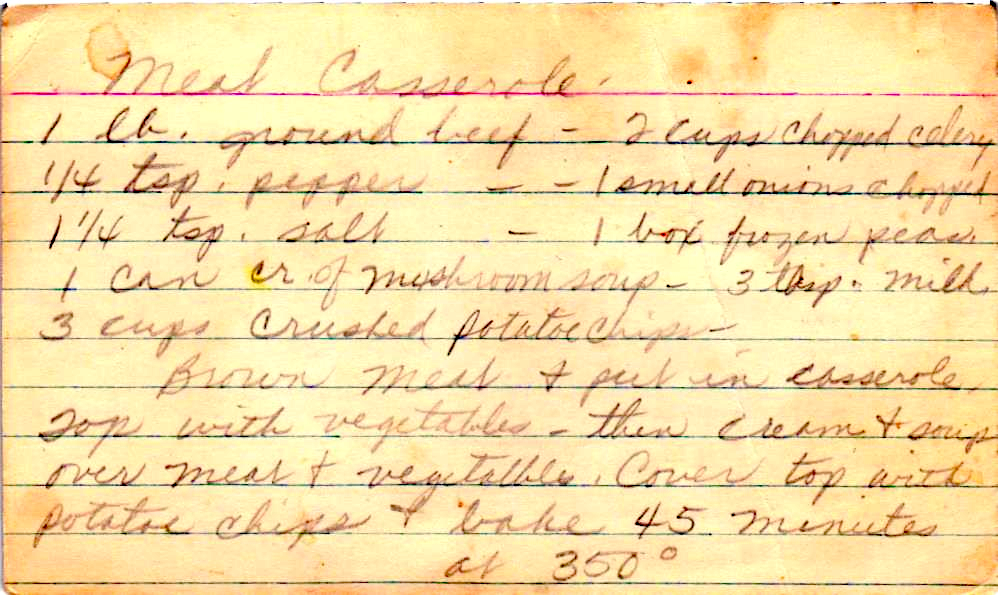 Meat Casserole.
1 lb. ground beef - 2 cups chopped celery
1/4 tsp. pepper - - 1 small onions chopped
1 1/4 tsp. salt - 1 box frozen peas.
1 can cr. of mushroom soup - 3 tbsp. milk
3 cups crushed potatoe chips -
Brown meat & put in casserole.
Top with vegetables - then cream & soup
over meat & vegetables. Cover top with
potatoe chips & bake 45 minutes
at 350°